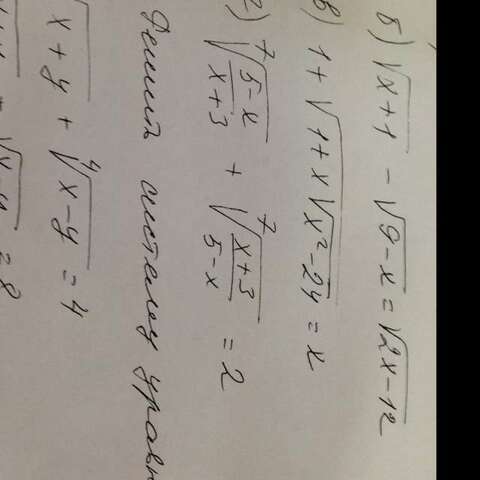 б) √x+1 − √9−x = √2x−12
в) 1 + √1+x√x²−24 = x
г) ⁷√(5−x)/(x+3) + ⁷√(x+3)/(5−x) = 2
Решить систему уравн
√x+y + ⁴√x−y = 4
= 8